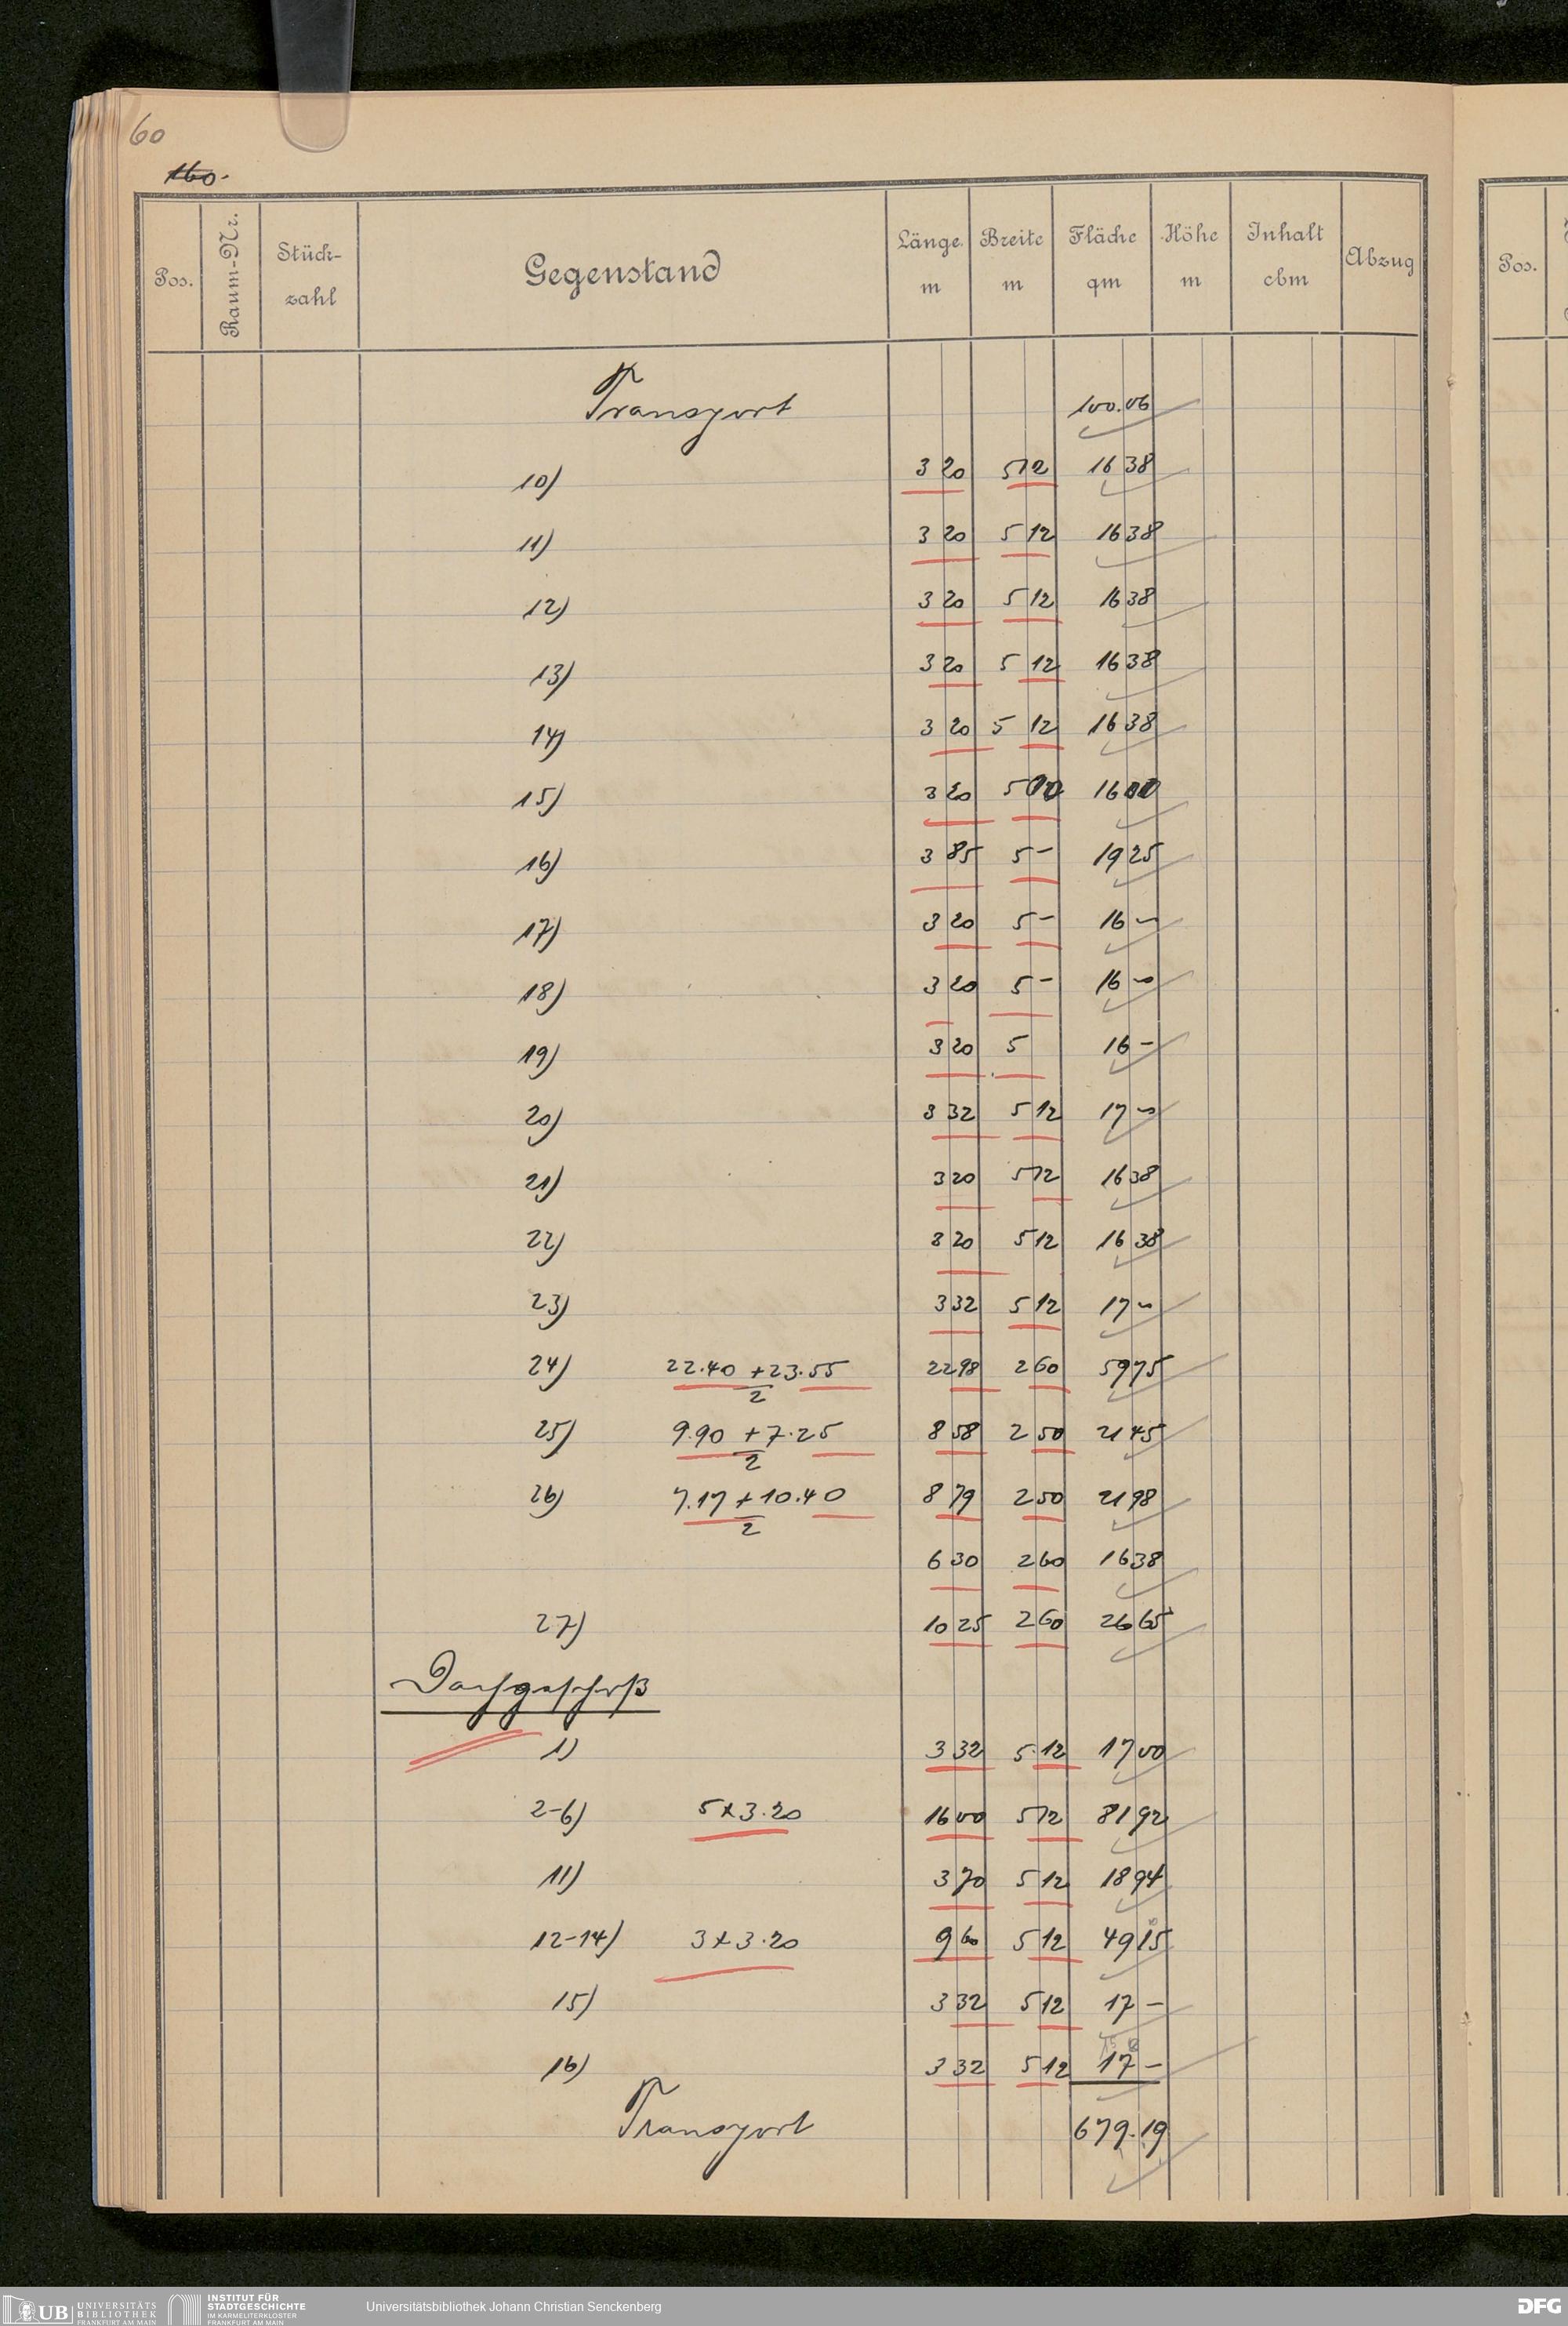 60
160.
Pos. Raum-Nr. Stück-zahl Gegenstand Länge m Breite m Fläche qm Höhe m Inhalt cbm Abzug
Pos.
Transport 100.06
10) 3 20 5 12 16 38
11) 3 20 5 12 16 38
12) 3 20 5 12 16 38
13) 3 20 5 12 16 38
14) 3 20 5 12 16 38
15) 3 20 5 00 16 00
16) 3 85 5 – 19 25
17) 3 20 5 – 16 –
18) 3 20 5 – 16 –
19) 3 20 5 16 –
20) 3 32 5 12 17 –
21) 3 20 5 12 16 38
22) 3 20 5 12 16 38
23) 3 32 5 12 17 –
24) 22.40 + 23.55 22 98 2 60 59 75
2
25) 9.90 + 7.25 8 58 2 50 21 45
2
26) 7.17 + 10.40 8 79 2 50 21 98
2
6 30 2 60 16 38
27) 10 25 2 60 26 65
Dachgeschoß
1) 3 32 5.12 17 00
2-6) 5 x 3.20 16 00 5 12 81 92
11) 3 70 5 12 18 94
12-14) 3 x 3.20 9 60 5 12 49 15
15) 3 32 5 12 17 –
16) 3 32 5 12 17 –
Transport 679.19
UB UNIVERSITÄTS BIBLIOTHEK FRANKFURT AM MAIN
INSTITUT FÜR STADTGESCHICHTE IM KARMELITERKLOSTER FRANKFURT AM MAIN
Universitätsbibliothek Johann Christian Senckenberg
DFG